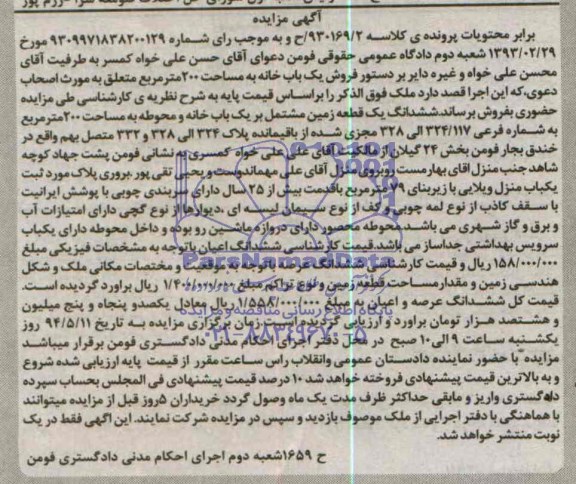 آگهی مزایده
برابر محتویات پرونده ی کلاسه ۹۳۰۱۶۹/۲/ح و به موجب رای شماره ۹۳۰۹۹۷۱۸۳۸۲۰۰۱۲۹ مورخ
۱۳۹۳/۰۲/۲۹ شعبه دوم دادگاه عمومی حقوقی فومن دعوای آقای حسن علی خواه کمسر به طرفیت آقای
محسن علی خواه و غیره دایر بر دستور فروش یک باب خانه به مساحت ۲۰۰مترمربع متعلق به مورث اصحاب
دعوی،که این اجرا قصد دارد ملک فوق الذکر را براساس قیمت پایه به شرح نظریه ی کارشناسی طی مزایده
حضوری بفروش برساند.ششدانگ یک قطعه زمین مشتمل بر یک باب خانه و محوطه به مساحت ۲۰۰مترمربع
به شماره فرعی ۳۲۴/۱۱۷ الی ۳۲۸ مجزی شده از باقیمانده پلاک ۳۲۴ الی ۳۲۸ و ۳۳۲ متصل بهم واقع در
خندق بجار فومن بخش ۲۴ گیلان از مالکیت آقای علی علی خواه کمسری به نشانی فومن پشت جهاد کوچه
شاهد جنب منزل اقای بهارمست روبروی منزل آقای علی مهماندوست و یحیی تقی پور .برروی پلاک مورد ثبت
یکباب منزل ویلایی با زیربنای ۷۹ مترمربع باقدمت بیش از ۲۵ سال دارای سربندی چوبی با پوشش ایرانیت
با سقف کاذب از نوع لمه چوبی و کف از نوع سیمان لیسه ای ،دیوارها از نوع گچی دارای امتیازات آب
و برق و گاز شهری می باشد.محوطه محصور دارای دروازه ماشین رو بوده و داخل محوطه دارای یکباب
سرویس بهداشتی جداساز می باشد.قیمت کارشناسی ششدانگ اعیان باتوجه به مشخصات فیزیکی مبلغ
۱۵۸/۰۰۰/۰۰۰ ریال و قیمت کارشناسی ششدانگ عرصه باتوجه به موقعیت و مختصات مکانی ملک و شکل
هندسی زمین و مقدار مساحت قطعه زمین و نوع تراکم مبلغ ۱/۴۰۰/۰۰۰/۰۰۰ ریال براورد گردیده است.
قیمت کل ششدانگ عرصه و اعیان به مبلغ ۱/۵۵۸/۰۰۰/۰۰۰ ریال معادل یکصدو پنجاه و پنج میلیون
و هشتصد هزار تومان براورد و ارزیابی گردیده است. زمان برگزاری مزایده به تاریخ ۹۴/۵/۱۱ روز
یکشنبه ساعت ۹ الی ۱۰ صبح در محل دفتر اجرای احکام مدنی دادگستری فومن برقرار میباشد
مزایده با حضور نماینده دادستان عمومی وانقلاب راس ساعت مقرر از قیمت پایه ارزیابی شده شروع
و به بالاترین قیمت پیشنهادی فروخته خواهد شد.۱۰ درصد قیمت پیشنهادی فی المجلس بحساب سپرده
دادگستری واریز و مابقی حداکثر ظرف مدت یک ماه وصول گردد خریداران ۵روز قبل از مزایده میتوانند
با هماهنگی با دفتر اجرایی از ملک موصوف بازدید و سپس در مزایده شرکت نمایند. این آگهی فقط در یک
نوبت منتشر خواهد شد.
ح ۱۶۵۹شعبه دوم اجرای احکام مدنی دادگستری فومن
ParsNamadData
پایگاه اطلاع رسانی مناقصه و مزایده